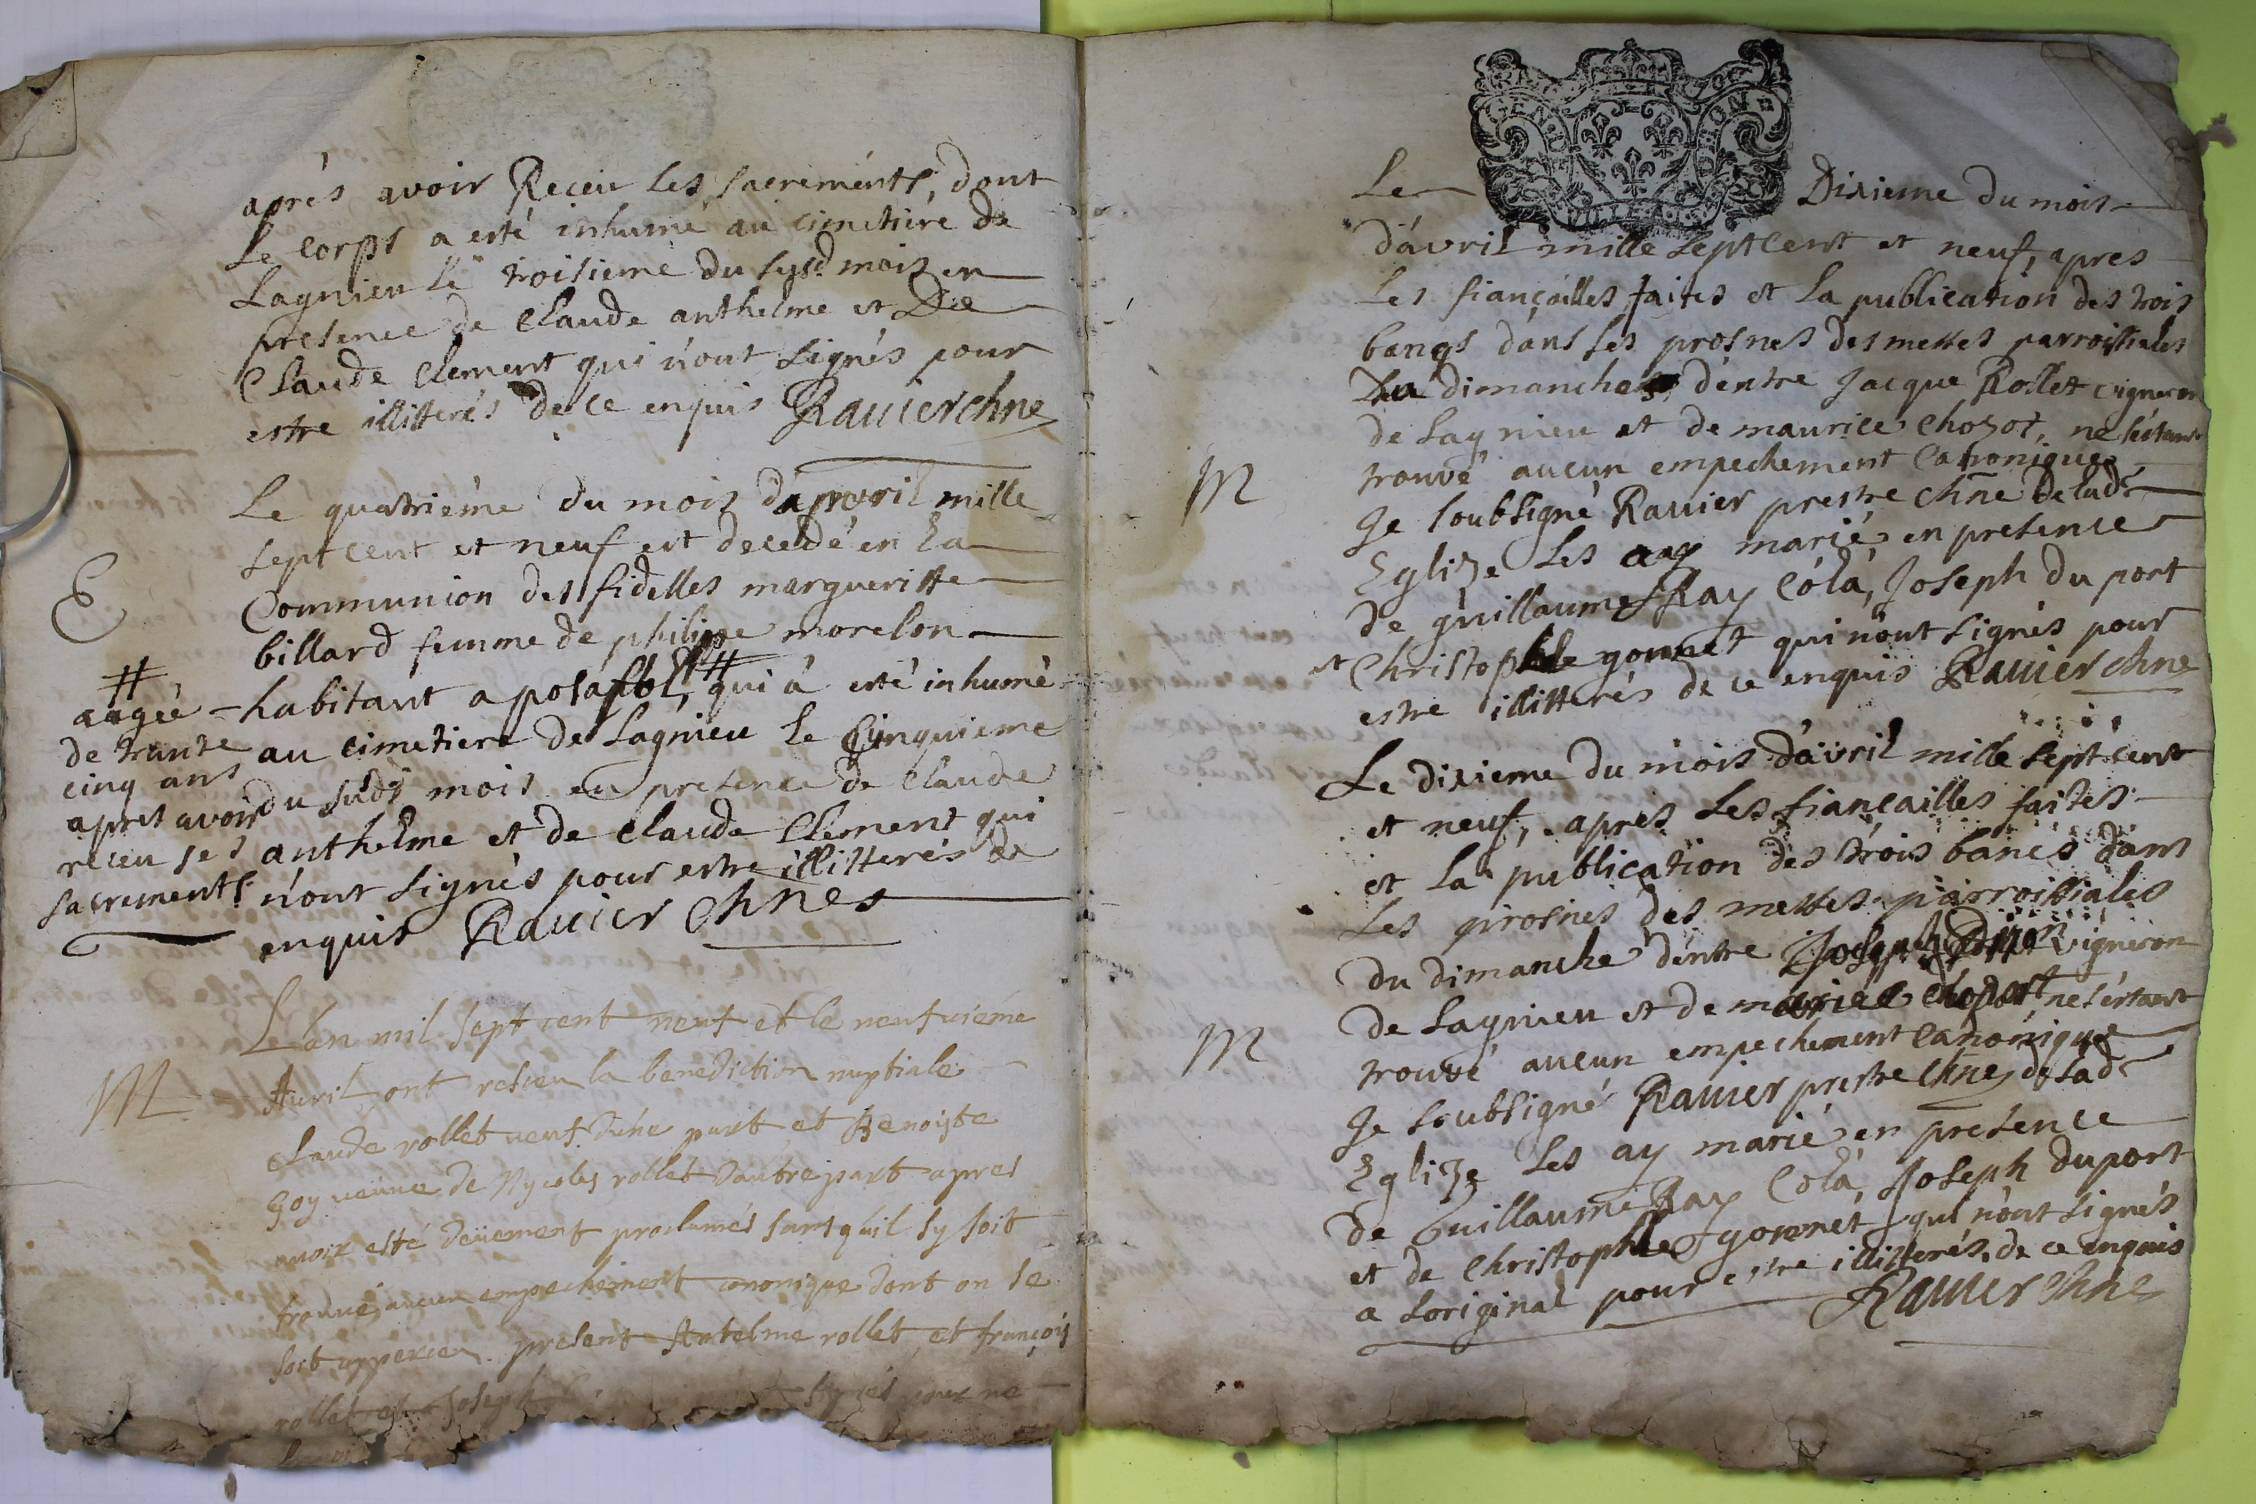 aprés avoir Receu les sacreménts, dont
le corps a esté inhumé au cimetiére de
Lagnieu le troisieme du susd mois en
presence de Claude anthelme et De
Claude Clement qui n'ont signés pour
estre illitterés de ce enquis Rauier chne
Le quatriéme du mois d'avril mille
sept cent et neuf est decedé en La
Communion des fidelles margueritte
billard femme de philippe morelon
habitant a posafol, # qui à esté inhumé
au cimetiere de Lagnieu le Cinquieme
du susd mois en presence de Claude
anthelme et de Claude Clement qui
n'ont signés pour estre illitterés de
enquis Rauier Chnes
E
#
aagée
de trante
cinq ans
apres avoir
receu ses
sacrements
M
L'an mil sept cent neuf et le neufvième
Auril ont resceu la benediction nuptiale
claude rollet veuf d'úne part et Benoiste
Goy veuue de Nycolas rollet d'autre part apres
auoir esté deüement proclamés sans qu'il sy soit
trouué aucun empechement canonique dont on se
soit apperceu present Antelme rollet et françois
rollet et Joseph signés pour ne
Le Dixieme du mois
d'avril mille sept cent et neuf, apres
Les fiançailles faites et La publication des trois
bangs dans les prosnes des messes parroissiales
du dimanche d'entre Jacque Rollet vigneron
de Lagnieu et de maurice Chozot, ne s'estant
trouvé aucun empechement Canonique
Je soubsigné Rauier prestre chne de lad
Eglize Les ay marié en presence
de guillaume Ray Cola, Joseph du port
et Christophle gonnet qui n'ont signés pour
estre illitterés de ce enquis Rauier chne
M
Le dixieme du mois d'avril mille sept cent
et neuf, apres Les fiancailles faites
et La publication des trois bancs dans
Les prosnes des messes parroissiales
du dimanche d'entre Joseph vigneron
de Lagnieu et de ne s'estant
trouvé aucun empechement canonique
Je soubsigné Rauier prestre chne de lad
Eglize Les ay marié en presence
de Guillaume Ray Cola, Joseph duport
et de Christophle gonnet qui n'ont signés
a Loriginal pour estre illitterés de ce enquis
Rauier chne
M